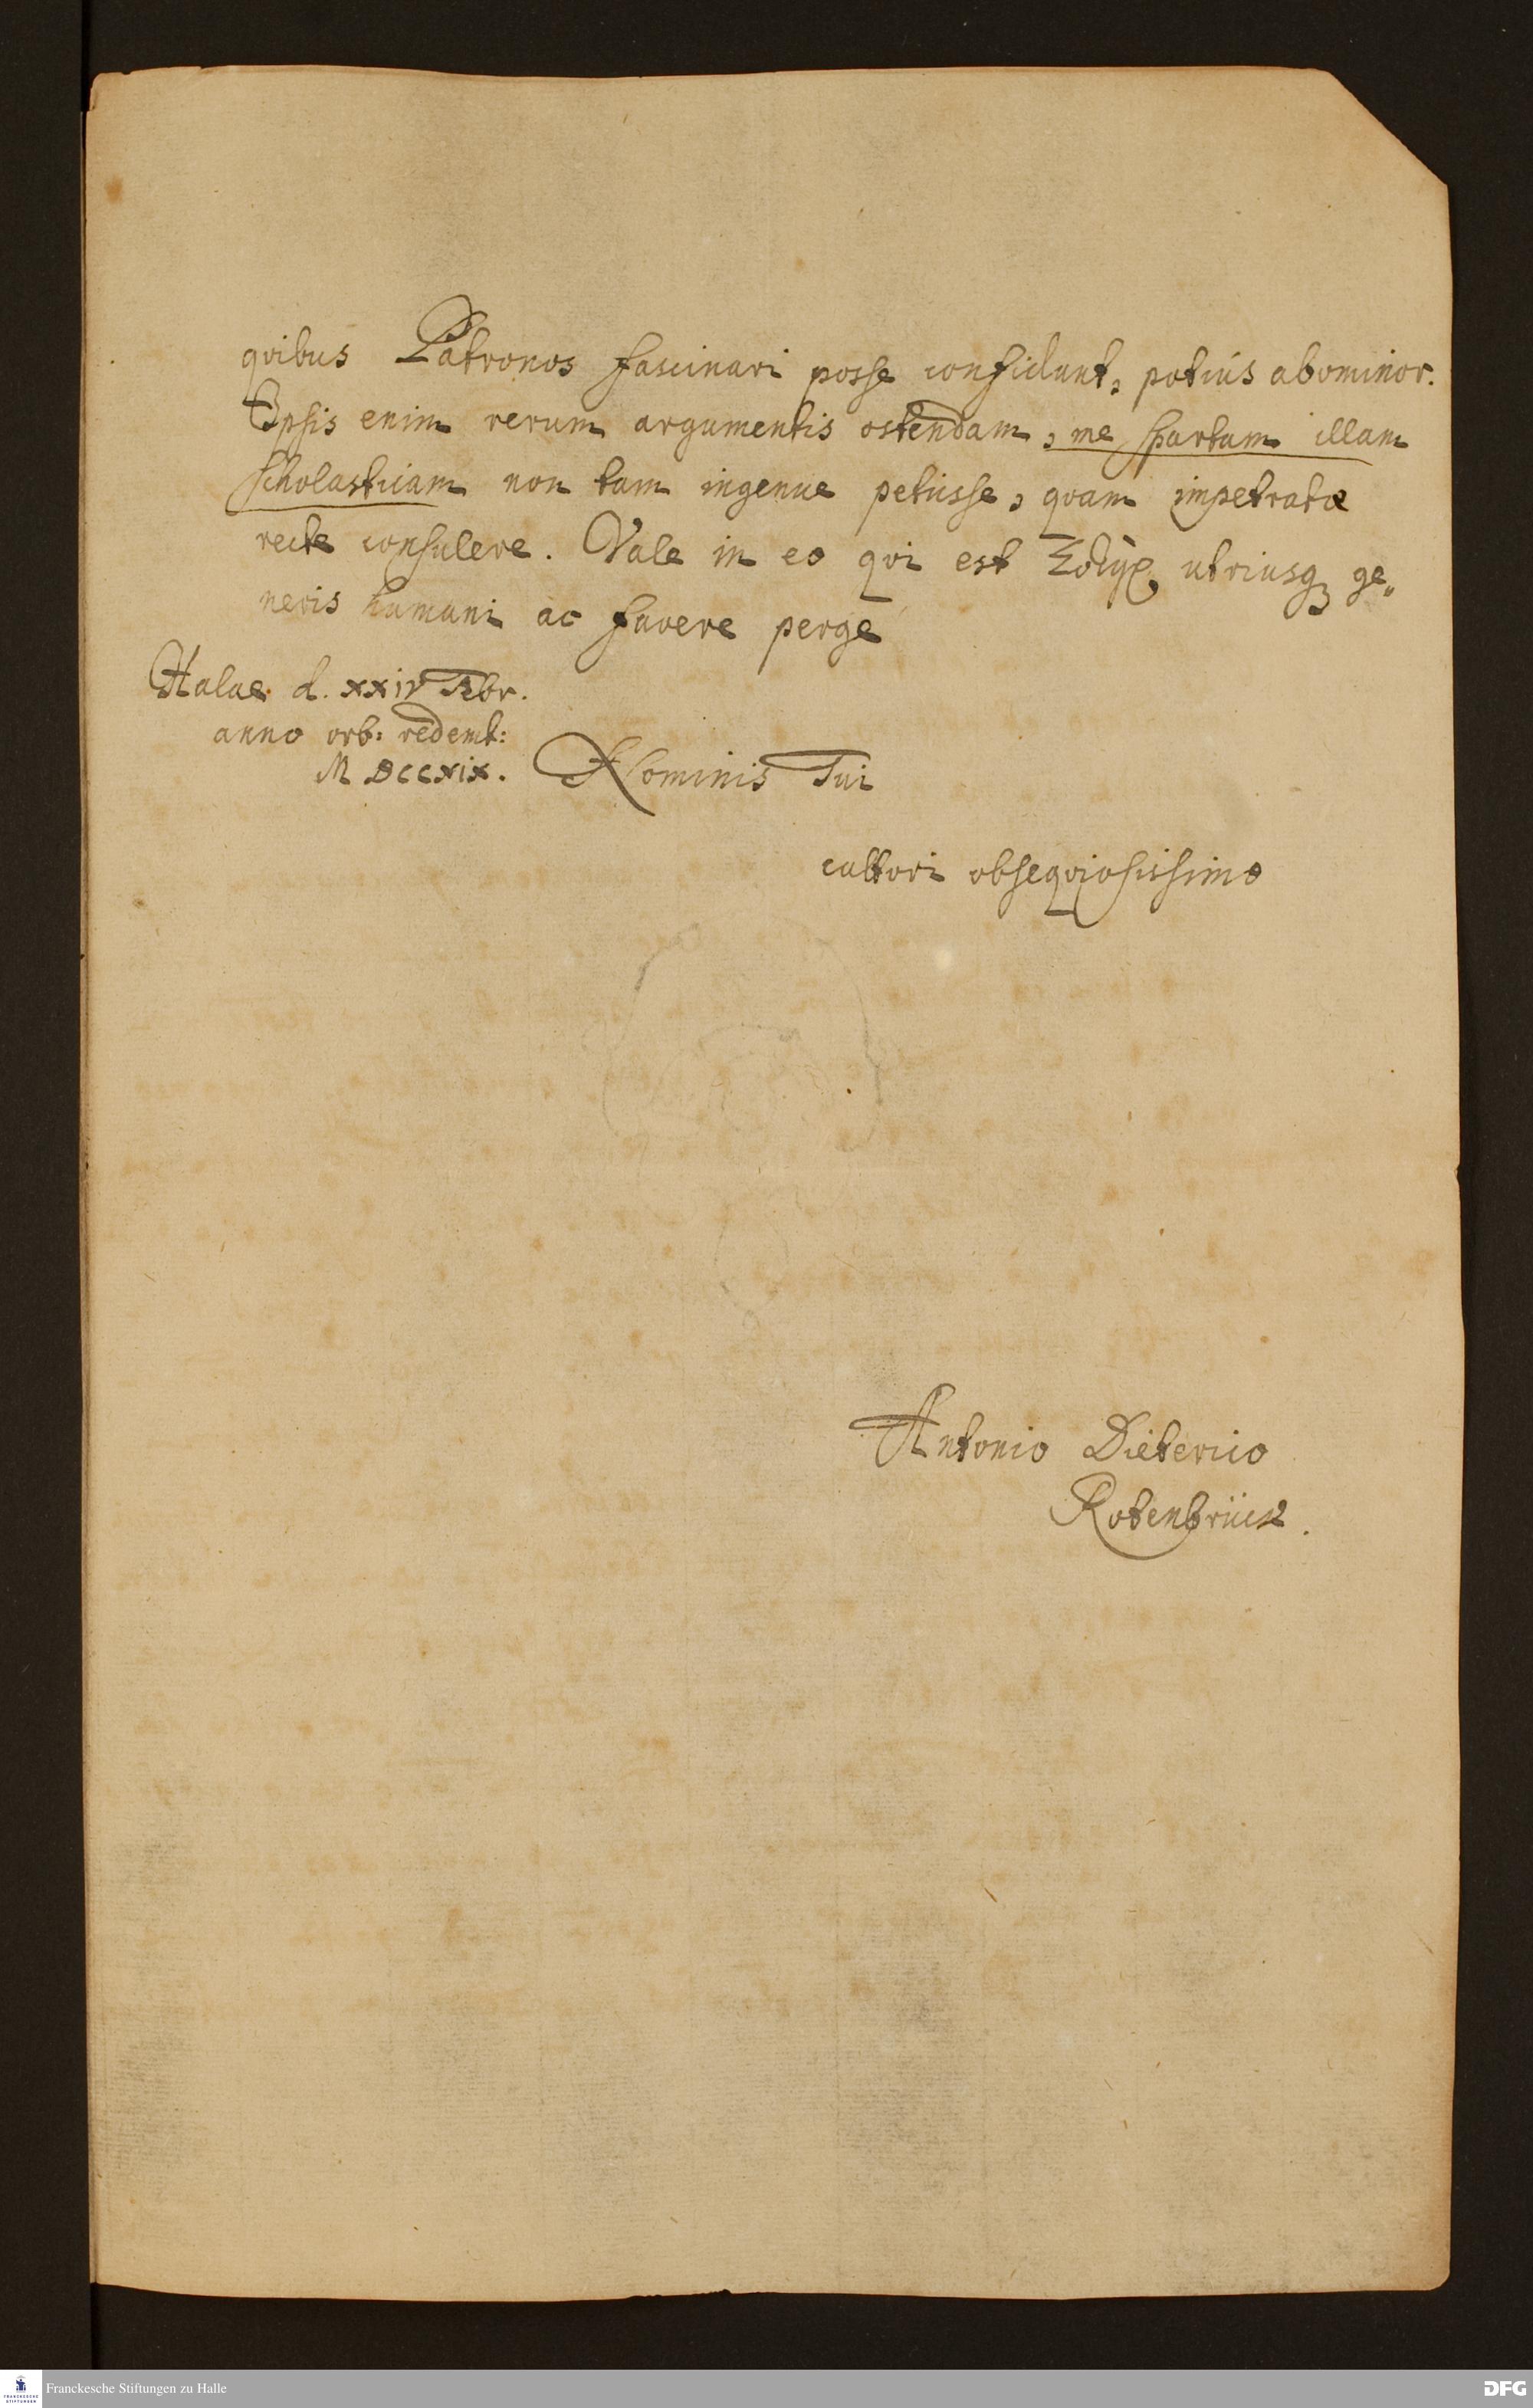 qvibus Patronos fascinari posse confidunt, potiùs abominor.
Ipsis enim rerum argumentis ostendam, me spartam illam
scholasticam non tam ingenue petiisse, qvam impetratæ
recte consulere. Vale in eo qvi est Σωτὴρ utriusq ge„
neris humani ac favere perge
Halae d. XXIV Febr.
anno orb: redemt:
MDCCXIX.
Nominis Tui
cultori obseqviosissimo
Antonio Dieterico
Rotenbrück.
Franckesche Stiftungen zu Halle
DFG